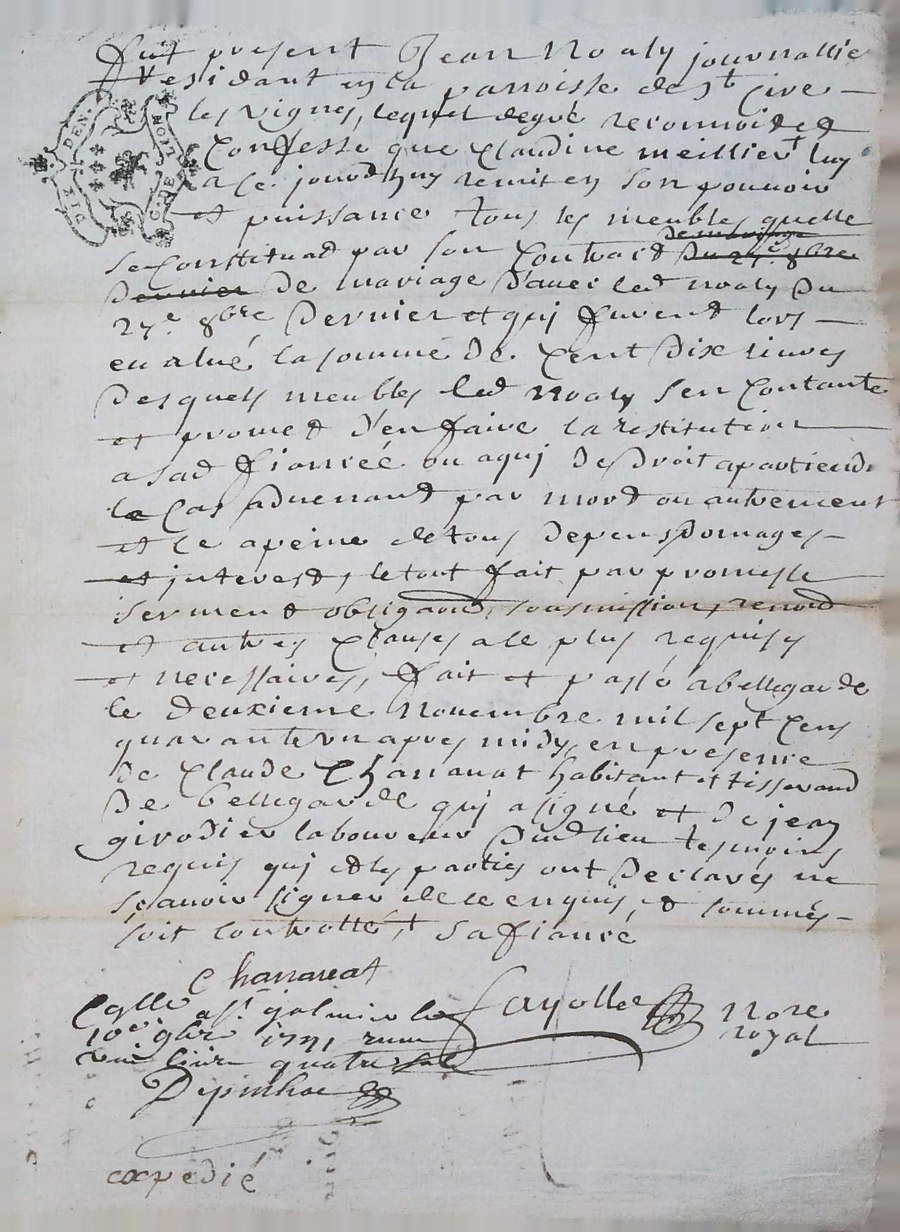 fut present Jean Noaly journallie
residant en la parroisse de st Cire
les vignes, lequel de gré reconnoit et
Confesse que Claudine meillier luy
a ce jourdhuy remit en son pouvoir
et puissance tous les meubles quelle
se Constituad par son Contract du 27e 8bre
dernier de mariage d'avec led noaly du
27e 8bre dernier et qui furent lors
evalué la somme de Cent dix livres
desquels meubles led noaly s'en Contante
et promet d'en faire la restitution
a sad fiancée ou a qui de droit apartiendr
le Cas advenant par mort ou autrement
et ce a peine de tous depens domages
et interest, le tout fait par promesse
serment obligaons, soumissions, renond
et autres Clauses a ce plus requises
et necessaires, fait et passé a bellegarde
le deuxieme novembre mil sept Cens
quarante un apres midy, en presence
de Claude Chanauat habitant et tisserand
de bellegarde qui a signé et de jean
girodier laboureur dud lieu tesmoins
requis qui et les parties ont declarés ne
scavoir signer de ce enquis, et sommés
soit controllé, sa fiancé
DIX DEN. G. DE LION
Chanauat
Fayolle Nore
royal
Cglle a st galmier le
10e 9bre 1741 recu
une livre quatre sols
expedié